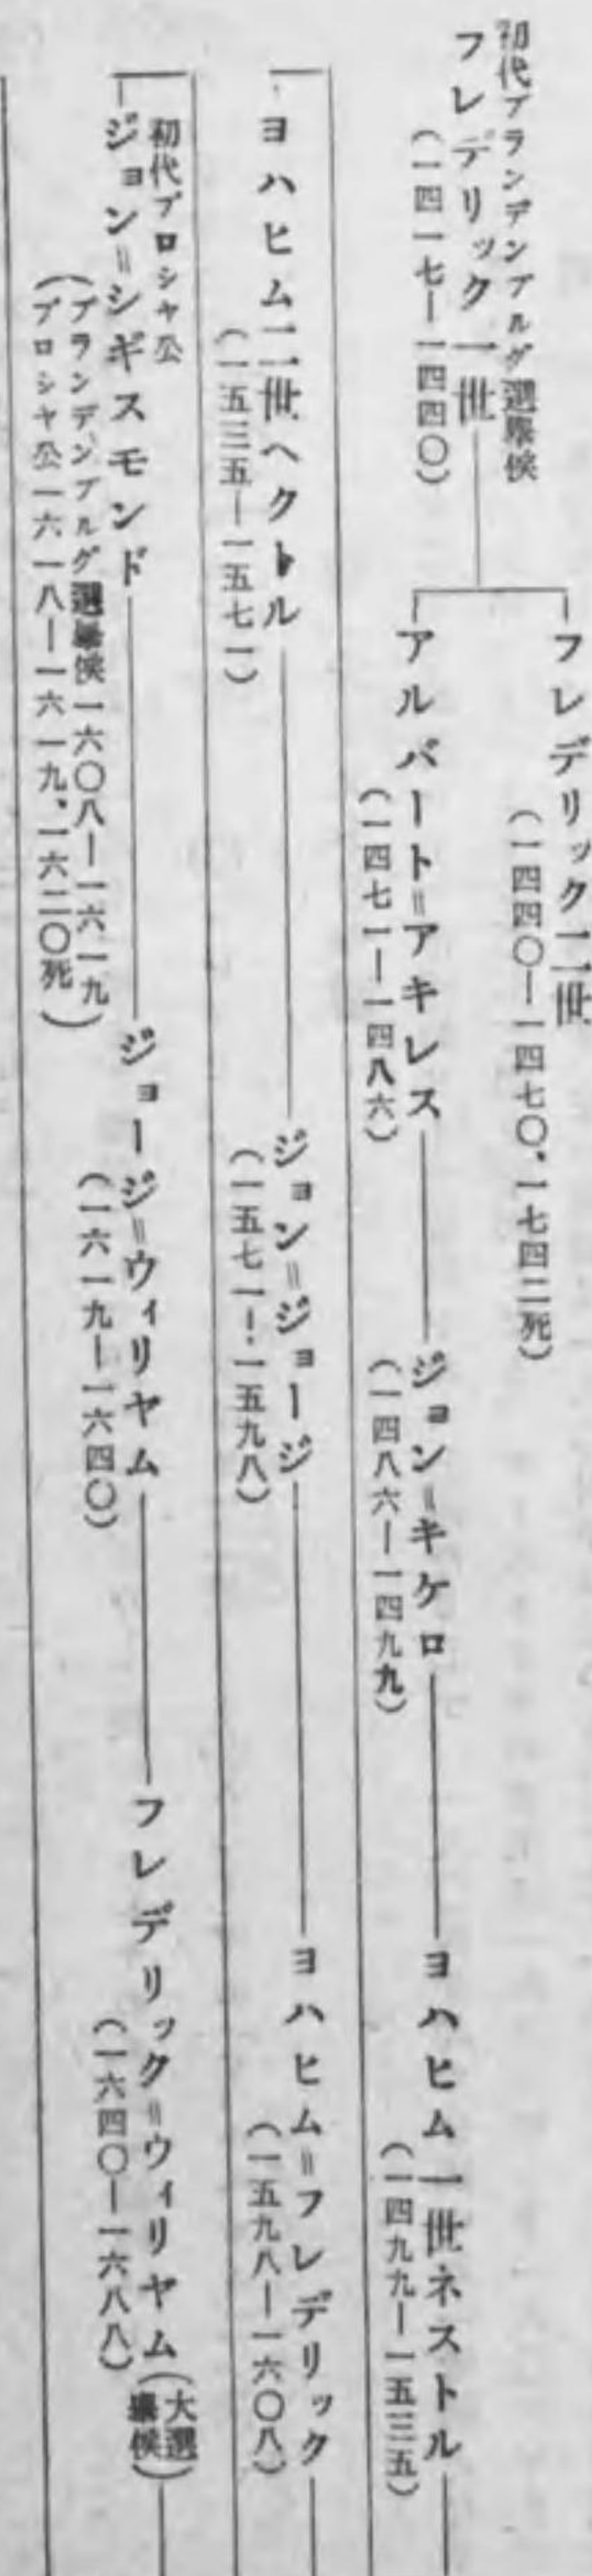 初代ブランデンブルグ選擧侯
フレデリック一世
(一四一七―一四四〇)
フレデリック二世
(一四四〇―一四七〇、一七四二死)
アルバート=アキレス
(一四七一―一四八六)
ジョン=キケロ
(一四八六―一四九九)
ヨハヒム一世ネストル
(一四九九―一五三五)
ヨハヒム二世ヘクトル
(一五三五―一五七一)
ジョン=ジョージ
(一五七一―一五九八)
ヨハヒム=フレデリック
(一五九八―一六〇八)
初代プロシヤ公
ジョン=シギスモンド
(ブランデンブルグ選擧侯一六〇八―一六一九
プロシヤ公一六一八―一六一九、一六二〇死)
ジョージ=ウィリヤム
(一六一九―一六四〇)
フレデリック=ウィリヤム(大選擧侯)
(一六四〇―一六八八)